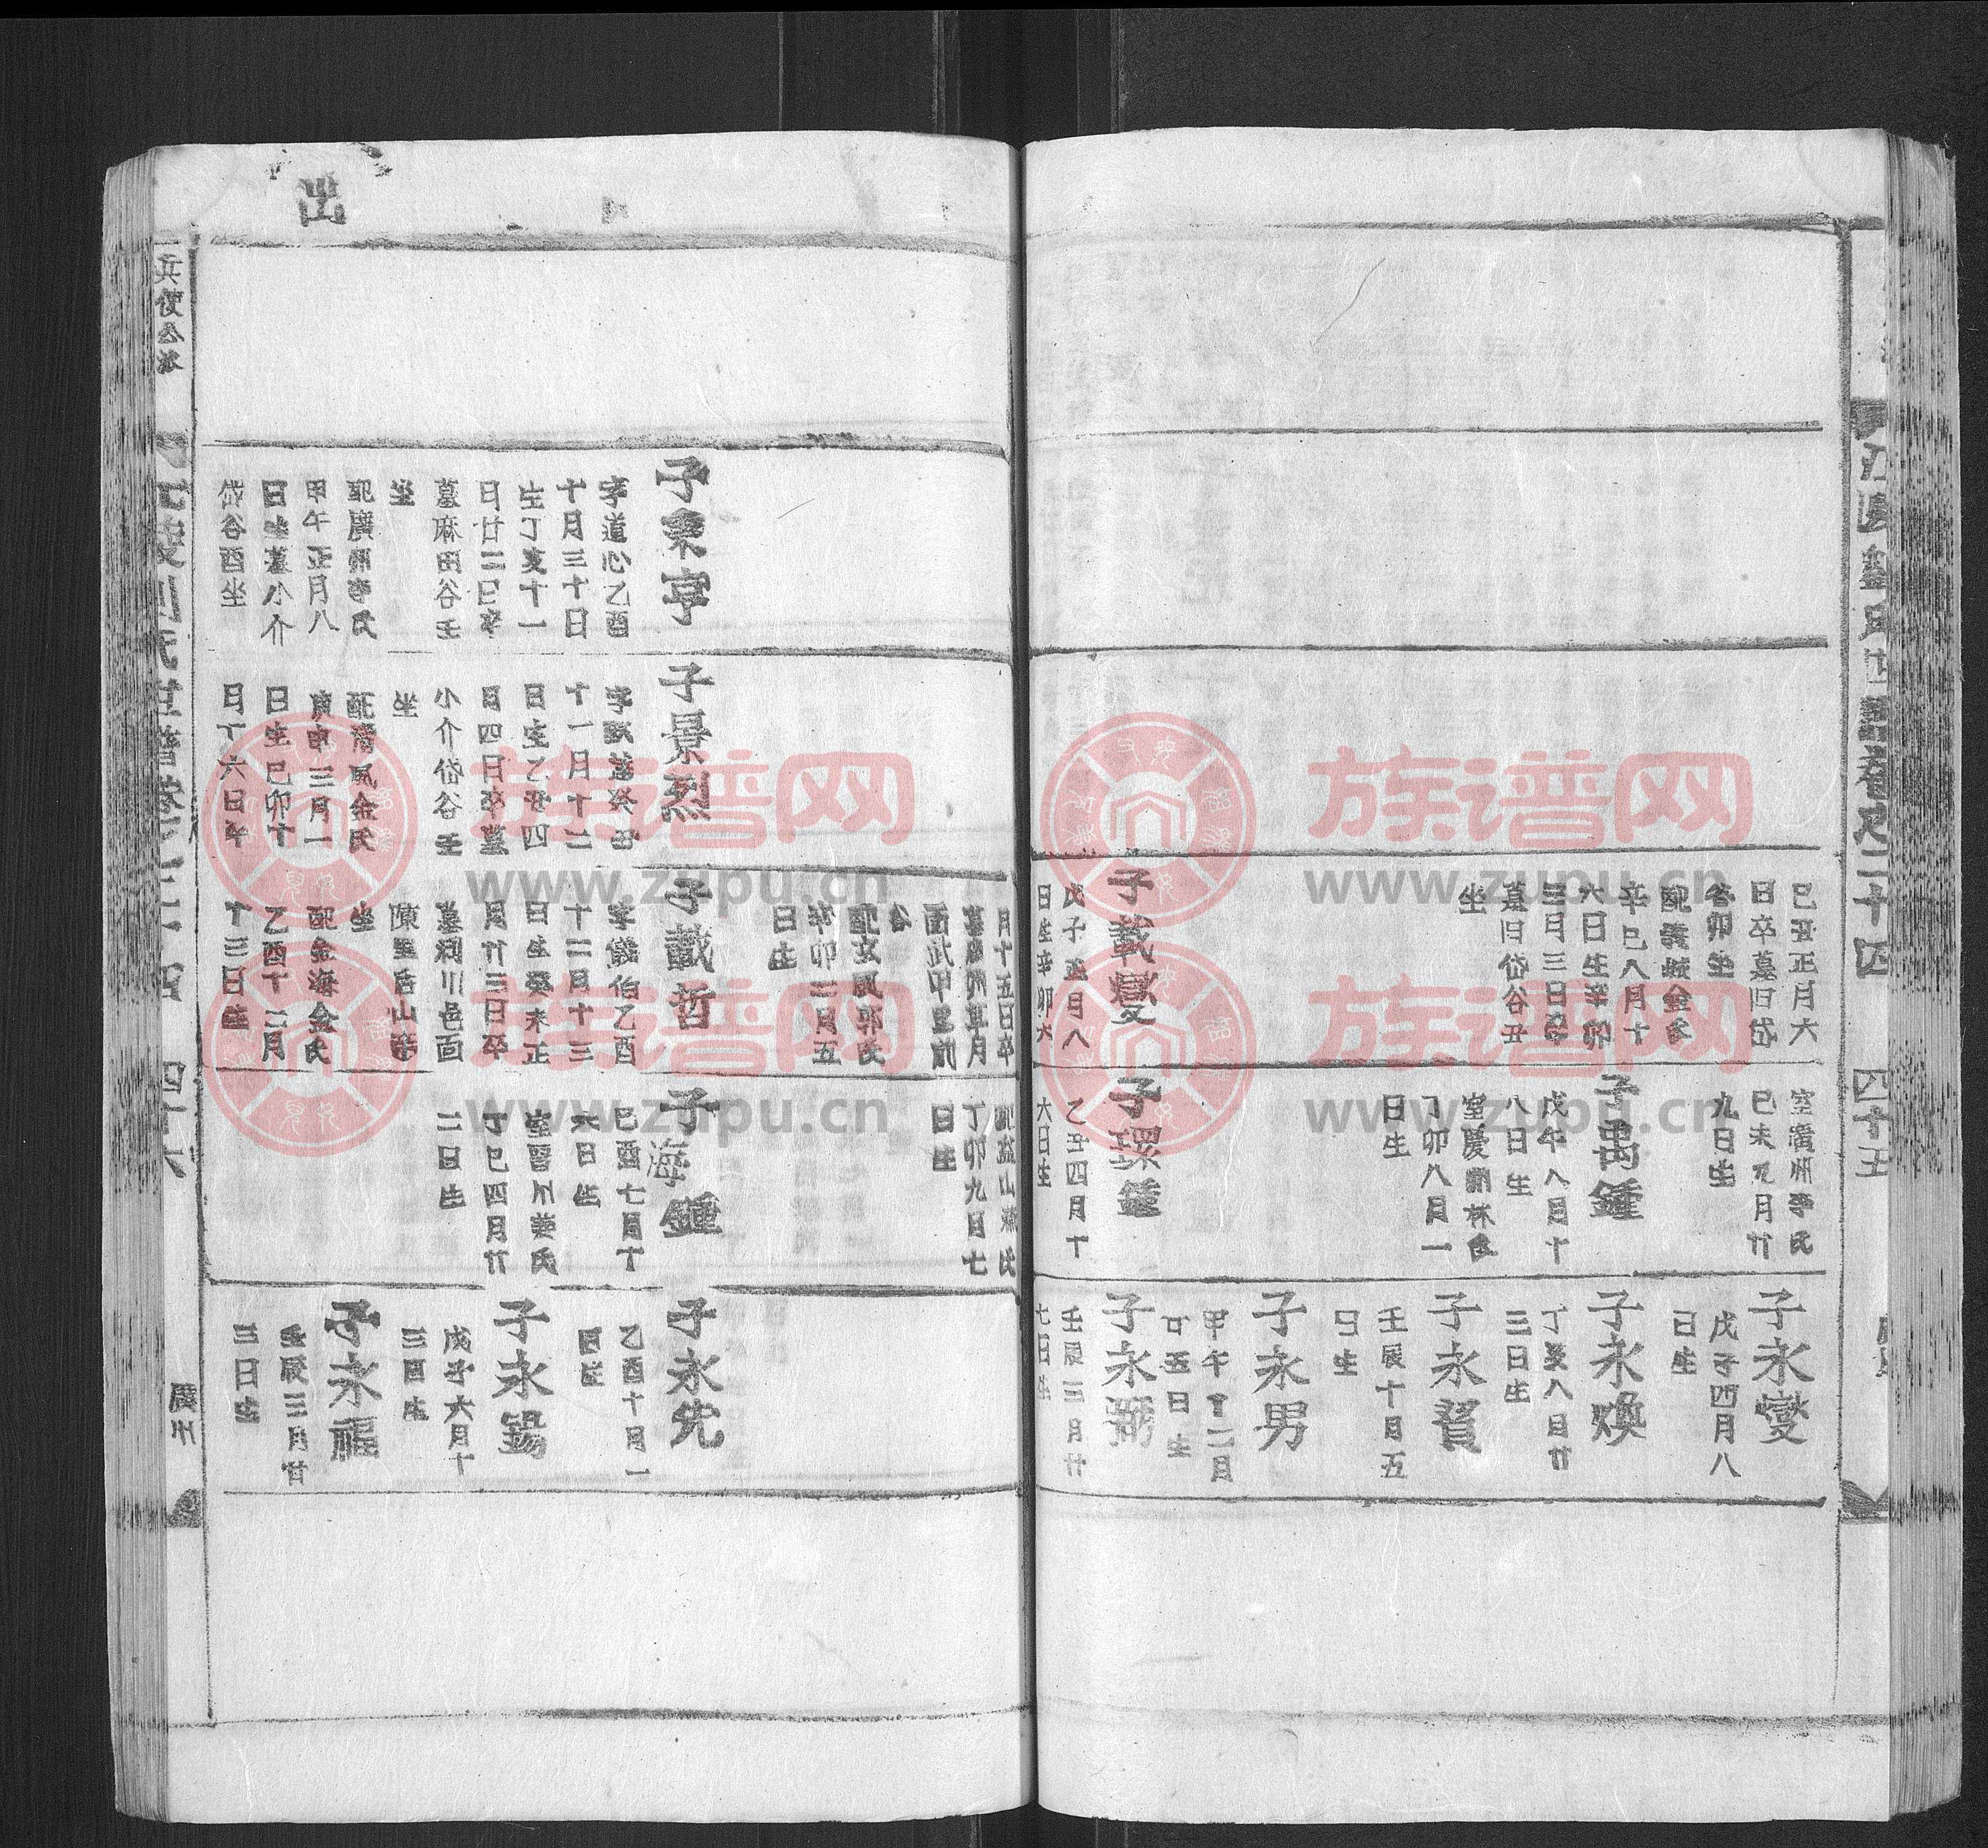 己丑正月六
日卒墓旧岱
谷卯坐
辛巳八月十
六日生辛卯
三月三日卒
墓旧岱谷丑
坐
子載燮
戊子正月八
日生辛卯六
室廣州李氏
己未九月廿
九日生
子禹鍾
戊午八月十
八日生
丁卯八月一
日生
子環鍾
乙丑四月十
六日生
子永燮
戊子四月八
日生
子永煥
丁亥八月廿
三日生
子永賛
壬辰十月五
日生
子永男
甲午十二月
廿五日生
子永弼
壬辰三月廿
七日生
四十五
出
月十五日卒
面武甲里前
谷
配玄風郭氏
辛卯二月五
日生
丁卯九月七
日生
子秉亨
字道心乙酉
十月三十日
生丁亥十一
月廿二日卒
墓麻田谷壬
坐
配廣州李氏
甲午正月八
日生墓小介
岱谷酉坐
子景烈
十一月十二
日生乙丑四
月四日卒墓
小介岱谷壬
坐
配清風金氏
庚申三月一
日生己卯十
月丁六日卒
子載哲
字儀伯乙酉
十二月十三
日生癸未正
月廿三日卒
墓利川邑面
坐
配金海金氏
乙酉十二月
十三日生
子海鍾
己酉七月十
六日生
丁巳四月廿
二日生
子永先
乙酉十月一
四生
子永錫
戊子六月十
三日生
子永福
壬辰三月廿
三日生
兵使公派
廣州